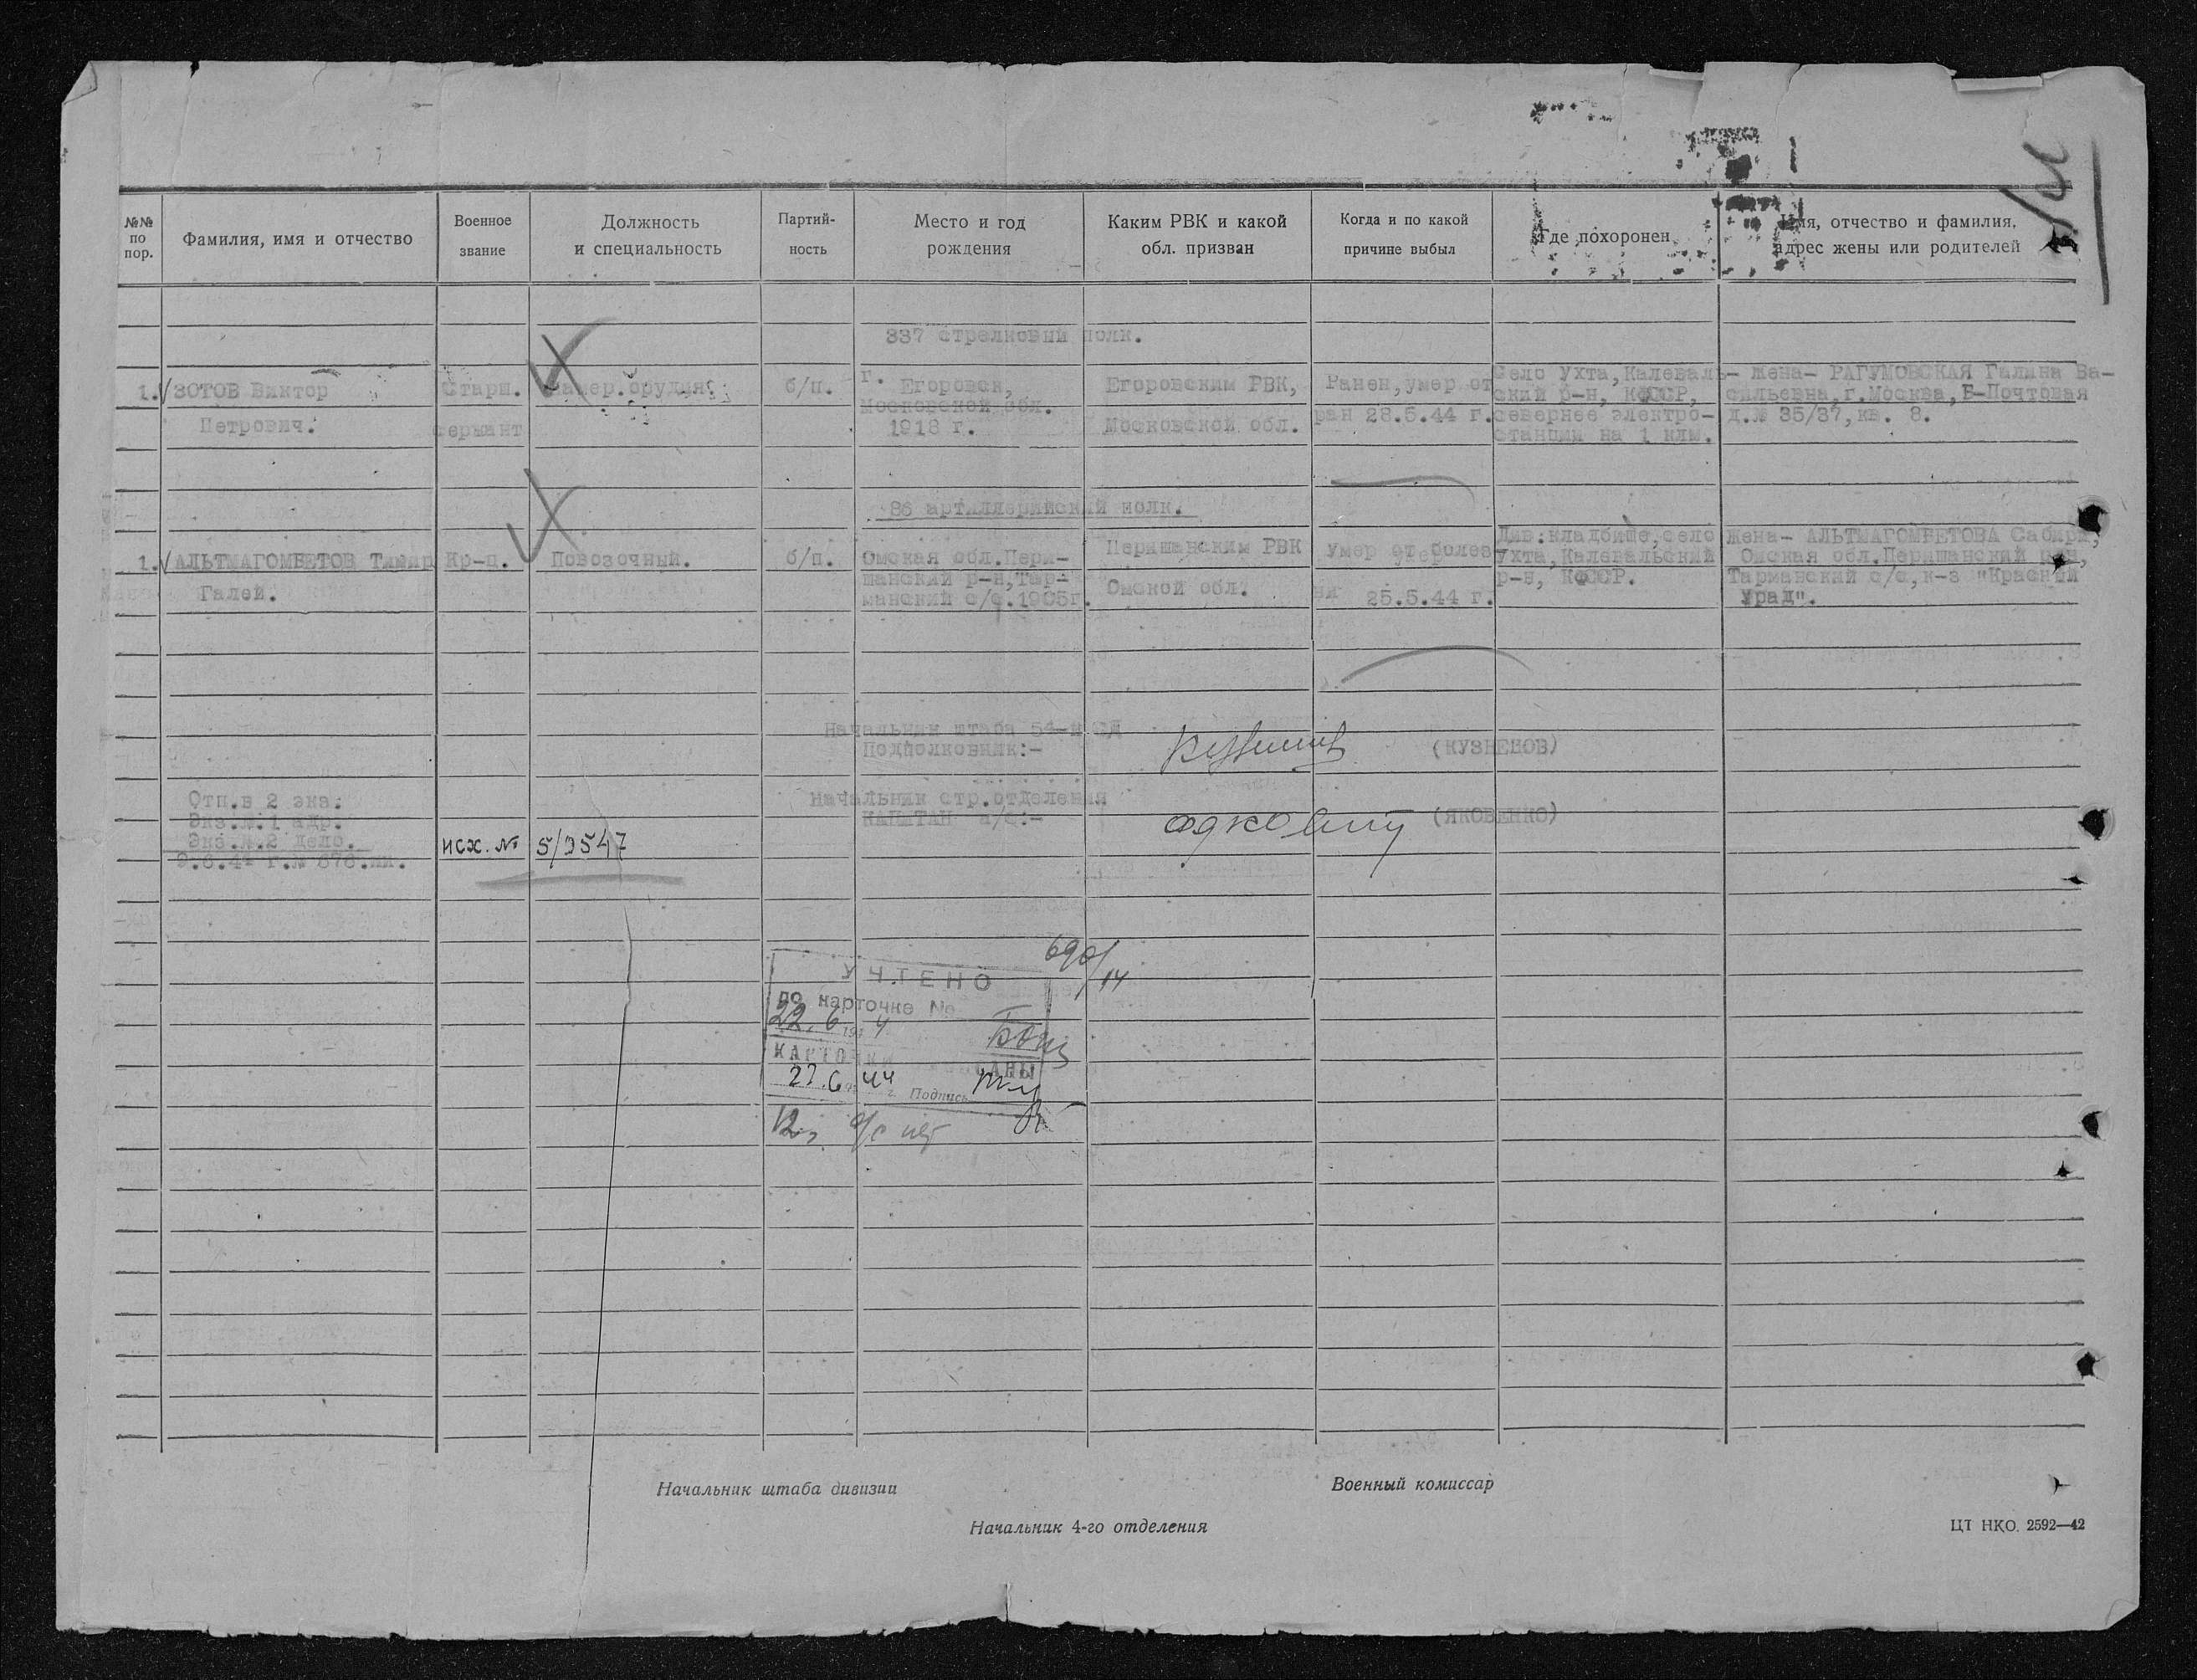 №№ по пор.
Фамилия, имя и отчество
Военное звание
Должность и специальность
Партий- ность
Место и год рождения
Каким РВК и какой обл. призван
Когда и по какой причине выбыл
Где похоронен
Имя, отчество и фамилия, адрес жены или родителей
337 стрелковый полк.
1. ЗОТОВ Виктор
Петрович.
Старш.
сержант
орудия.
б/п.
г. Егоровск,
Московской обл.
1918 г.
Егоровским РВК,
Московской обл.
Ранен, умер от
ран 28.5.44 г.
Село Ухта, Калеваль-
ский р-н, КФССР,
севернее электро-
станции на 1 клм.
жена- РАГУМОВСКАЯ Галина Ва-
сильевна, г. Москва, Б-Почтовая
д.№ 35/37, кв. 8.
86 артиллерийский полк.
1. АЛЬТМАГОМБЕТОВ Тимир
Галей.
Кр-ц.
Повозочный.
б/п.
Омская обл. Пери-
шанский р-н, Тар-
манский с/с. 1905г.
Перишанским РВК
Омской обл.
Умер от болез
ни 25.5.44 г.
Див: кладбище, село
Ухта, Калевальский
р-н, КФССР.
Жена- АЛЬТМАГОМБЕТОВА Сабира,
Омская обл. Перишанский
Тарманский с/с, к-з "Красный
Урад".
Начальник штаба 54-й СД
Подполковник:-
(КУЗНЕЦОВ)
Начальник стр. отделения
КАПИТАН а/с:-
(ЯКОВЕНКО)
Отп. в 2 экз.
Экз. №.1 адр.
Экз. №.2 дело.
9.6.44 г. № 676.
исх. № 5/3547
690/14
УЧТЕНО
по карточке №
22.6 1944
КАРТОЧКИ
27.6 44 г. Подпись
Начальник штаба дивизии
Военный комиссар
Начальник 4-го отделения
ЦТ НКО. 2592—42